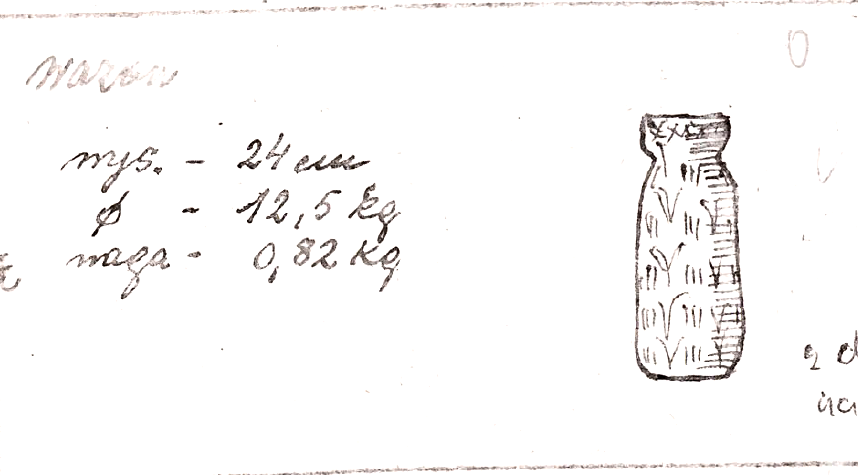 Wazon
wys. - 24 cm
ø - 12,5 kg
waga - 0,82 kg